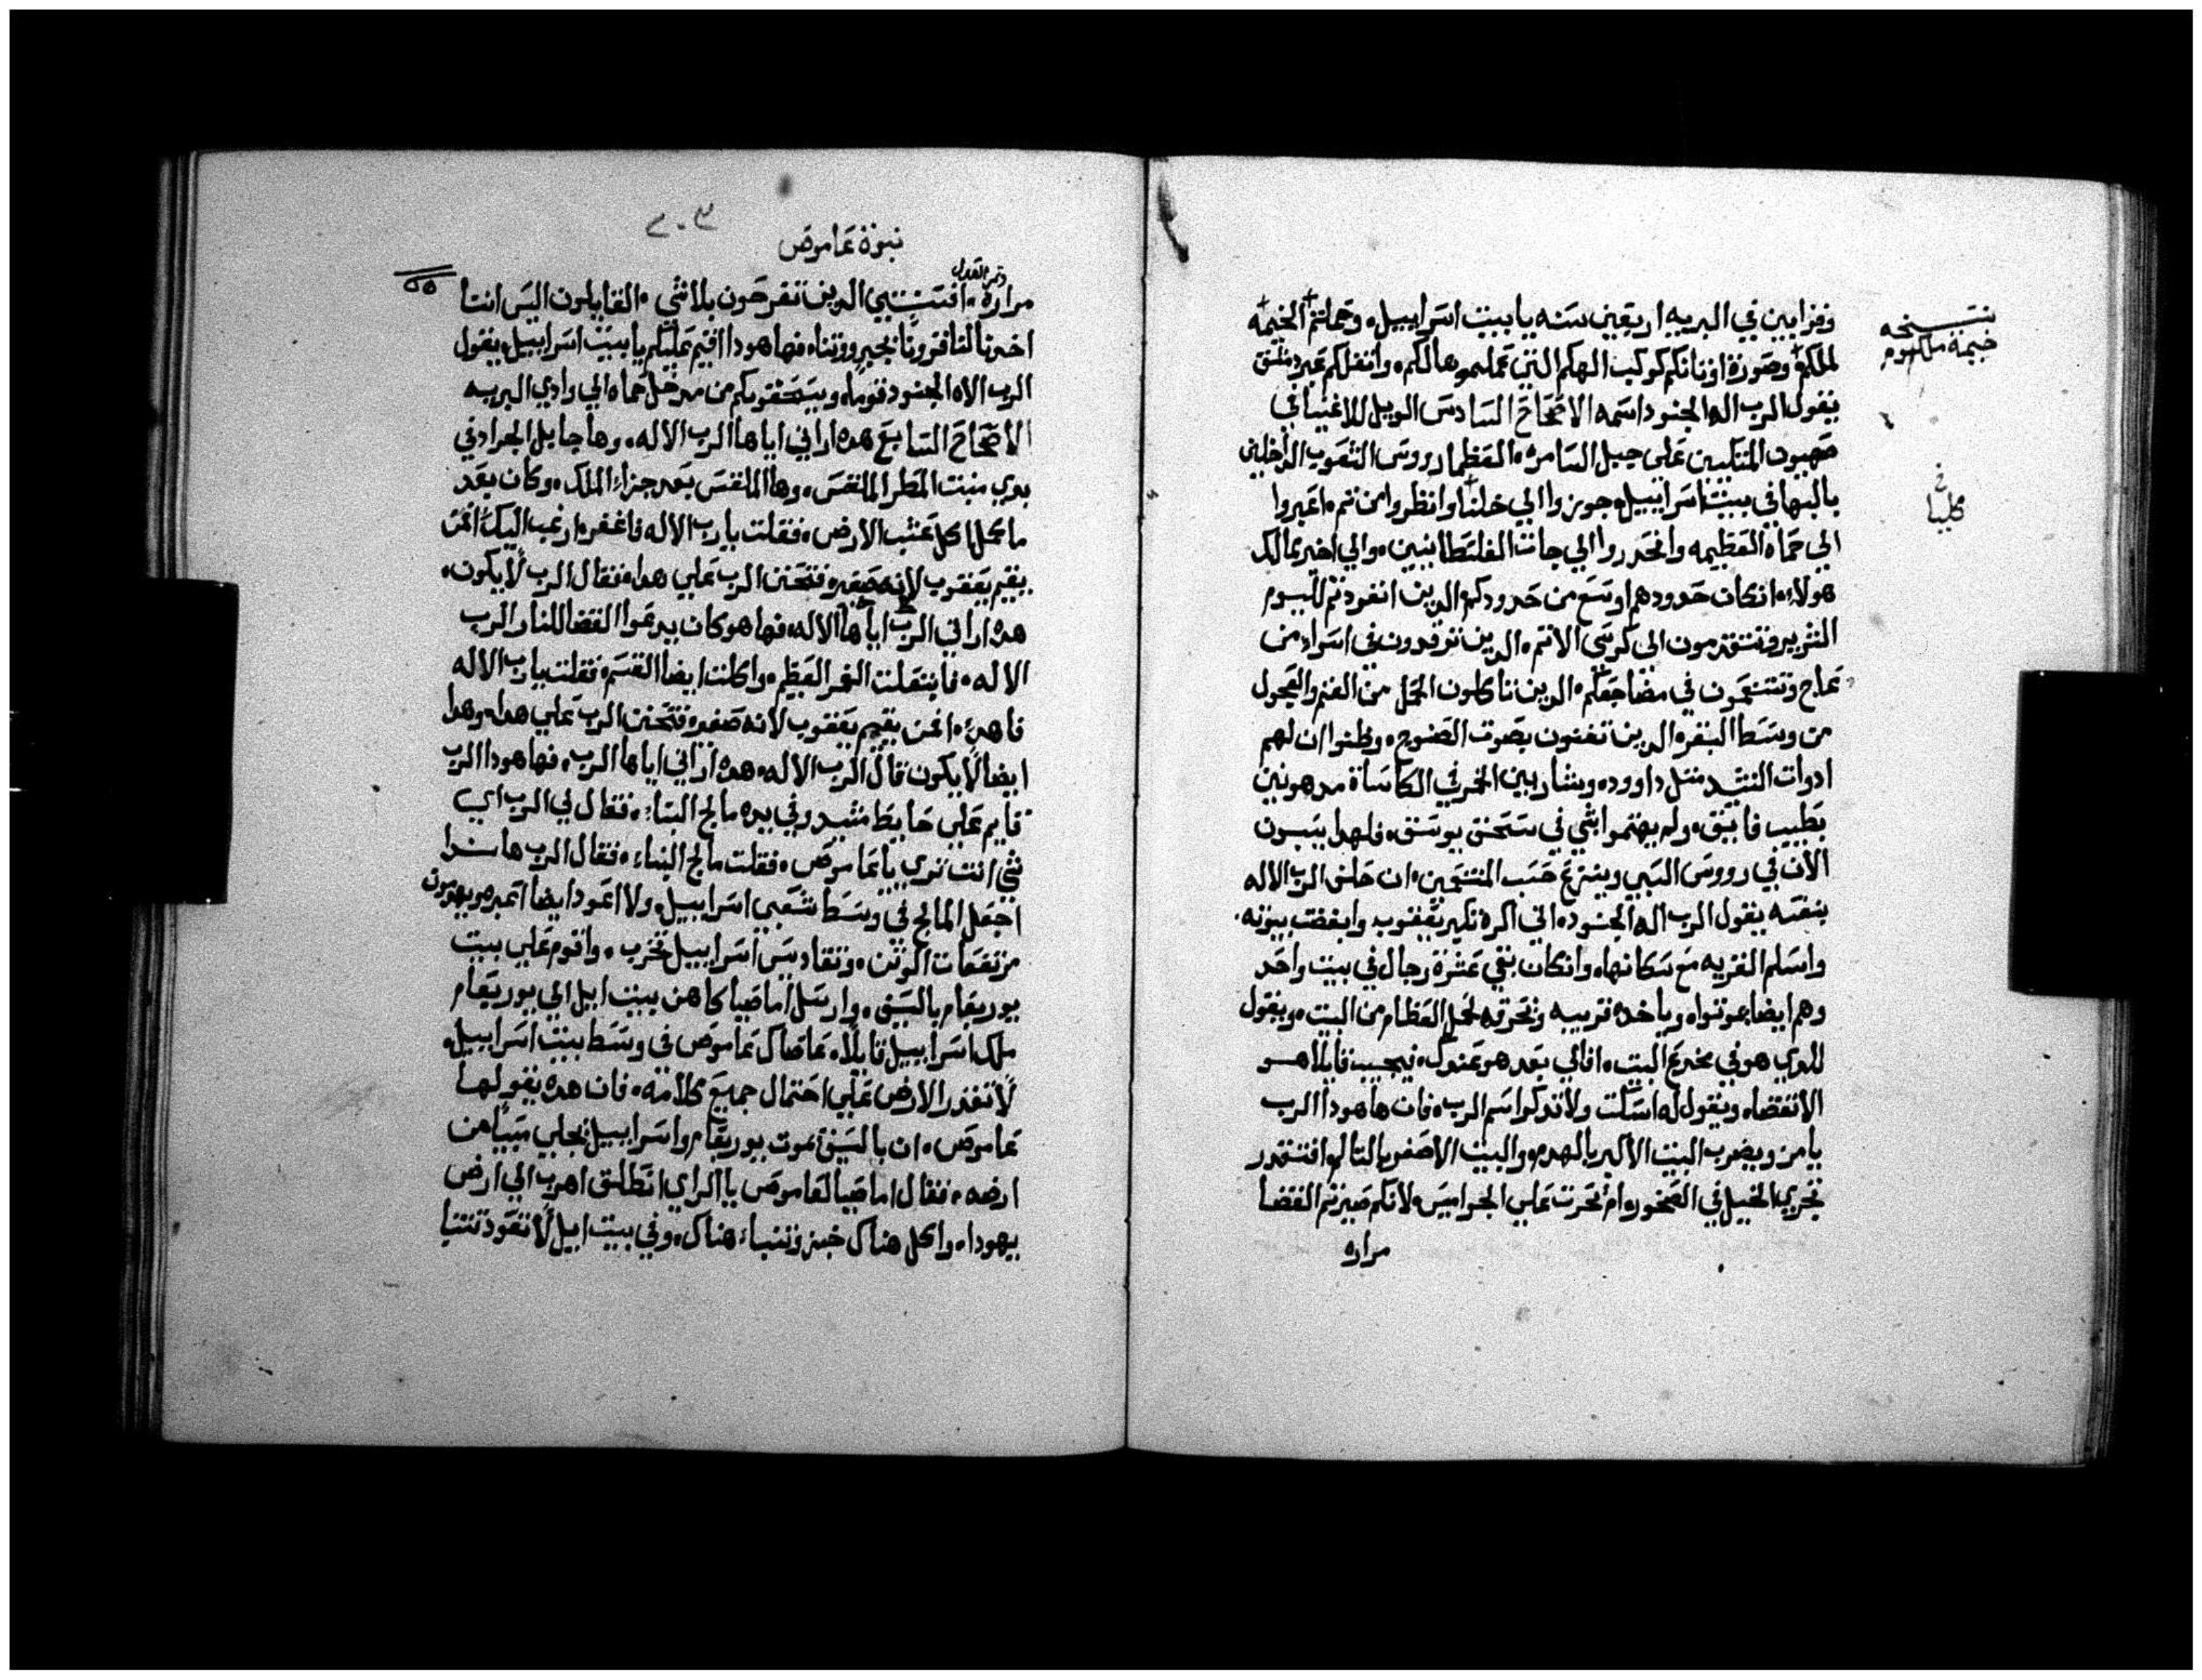 وقرابين في البريه اربعين سنه يا بيت اسراييل، وحملتم الخيمه
لملكم وصورة اوثانكم كوكب الهكم التي عملتموها لكم، وانقلكم عبر دمشق
يقول الرب اله الجنود اسمه الاصحاح السادس الويل للاغنيا في
صهيون المتكلين على جبل السامره، العظما رووس الشعوب الداخلين
بالبها في بيت اسراييل، جوزوا الي خلنا وانظروا من ثم، اعبروا
الي حماه العظيمه وانحدروا الي جات الفلسطانيين، والي اخير ممالك
هولاء، انكان حدودهم اوسع من حدودكم، الدين انفردتم لليوم
الشرير وتتقدمون الى كرسي الاثم، الدين ترقدون في اسراء من
عاج وتتنعمون في مضاجعكم، الدين تاكلون الحمل من الغنم والعجول
من وسط البقر، الدين تغنون بصوت الصنوج، وظنوا ان لهم
ادوات النشيد مثل داوود، وشاربين الخمر في الكاسات مدهونين
بطيب فايق، ولم يهتموا بشي في سحق يوسف، فلهدا يسبون
الان في رووس السبي وينزع حسب المتنعمين، ان حلف الرب الاله
بنفسه يقول الرب اله الجنود، اني اكره تكبر يعقوب وابغضت بيوته،
واسلم القريه مع سكانها، وانكان بقي عشرة رجال في بيت واحد
وهم ايضا يموتوا، وياخده قريبه ويحرقه لحمل العظام من البيت، ويقول
للدي هو في مخدع البيت، افالي بعد هو عندك، فيجيب قايلا هو
الانقضا، ويقول له اسكت ولا تدكر اسم الرب، فان ها هودا الرب
يامر ويضرب البيت الاكبر بالهدم، والبيت الاصغر بالتالم، افتقدر
تجري الخيل في الصخور، ام تحرث علي الجواميس، لانكم صيرتم القضا
مراره
نسخه
خيمة ملكوم
كلنيا
نبوة عاموص
٢٠٣
وتمر العدل
مراره، انتم الدين تفرحون بلا شي، القايلون اليس انتا
اخدنا لنا قرونا بجبروتنا، فها هودا اقيم عليكم يا بيت اسراييل، يقول
الرب الاه الجنود قوما، ويسحقونكم من مدخل حماه الي وادي البريه
الاصحاح السابع هده اراني اياها الرب الاله، وها جابل الجراد في
بدي منبت المطر الملقس، وها الملقس بعد جزاء الملك، وكان بعد
ما كمل اكل عشب الارض، فقلت يا رب الاله فاغفر، ارغب اليك، من
يقيم يعقوب لانه صغير، فتحنن الرب علي هدا، فقال الرب لا يكون،
هده اراني الرب اياها الاله، فها هو كان يدعوا القضا للنار الرب
الاله، فابتلعت الغمر العظيم، واكلت ايضا القسم، فقلت يا رب الاله
فاهدي، من يقيم يعقوب لانه صغير، فتحنن الرب علي هدا، وهدا
ايضا لا يكون قال الرب الاله، هده اراني اياها الرب، فها هودا الرب
قايم علي حايط مشيد وفي يده مالج البناء، فقال لي الرب اي
شي انت تري يا عاموص، فقلت مالج البناء، فقال الرب هاندا
اجعل المالج في وسط شعبي اسراييل، ولا اعود ايضا اعبره، ويهدمون
مرتفعات الوثن، وتقاديس اسراييل تخرب، واقوم علي بيت
يوربعام بالسيف، وارسل اماصيا كاهن بيت ايل الي يوربعام
ملك اسراييل قايلا، عاصاك عاموص في وسط بيت اسراييل،
لا تقدر الارض علي احتمال جميع كلامه، فان هده يقولها
عاموص، ان بالسيف يموت يوربعام واسراييل يجلي سبيا من
ارضه، فقال اماصيا لعاموص يا الراي انطلق اهرب الي ارض
يهودا، واكل هناك خبز وتنباء هناك، وفي بيت ايل لا تعود تتنبا